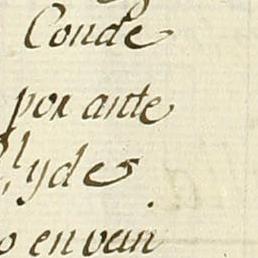 Conde
por ante
y des
o en vein